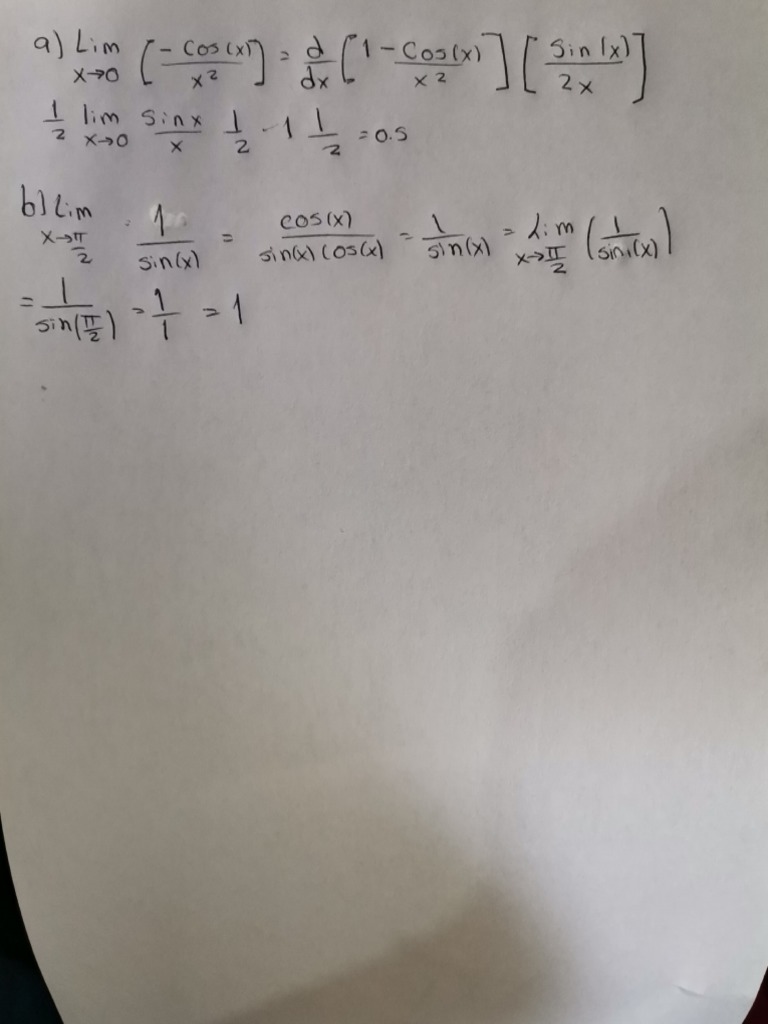 a) Lim x→0 [-cos(x)/x²] = d/dx [1-cos(x)/x²] [sin(x)/2x]
1/2 lim x→0 sinx/x 1/2 - 1 1/2 = 0.5
b) Lim x→π/2 1/sin(x) = cos(x)/sin(x)cos(x) = 1/sin(x) = Lim x→π/2 (1/sin(x))
= 1/sin(π/2) = 1/1 = 1